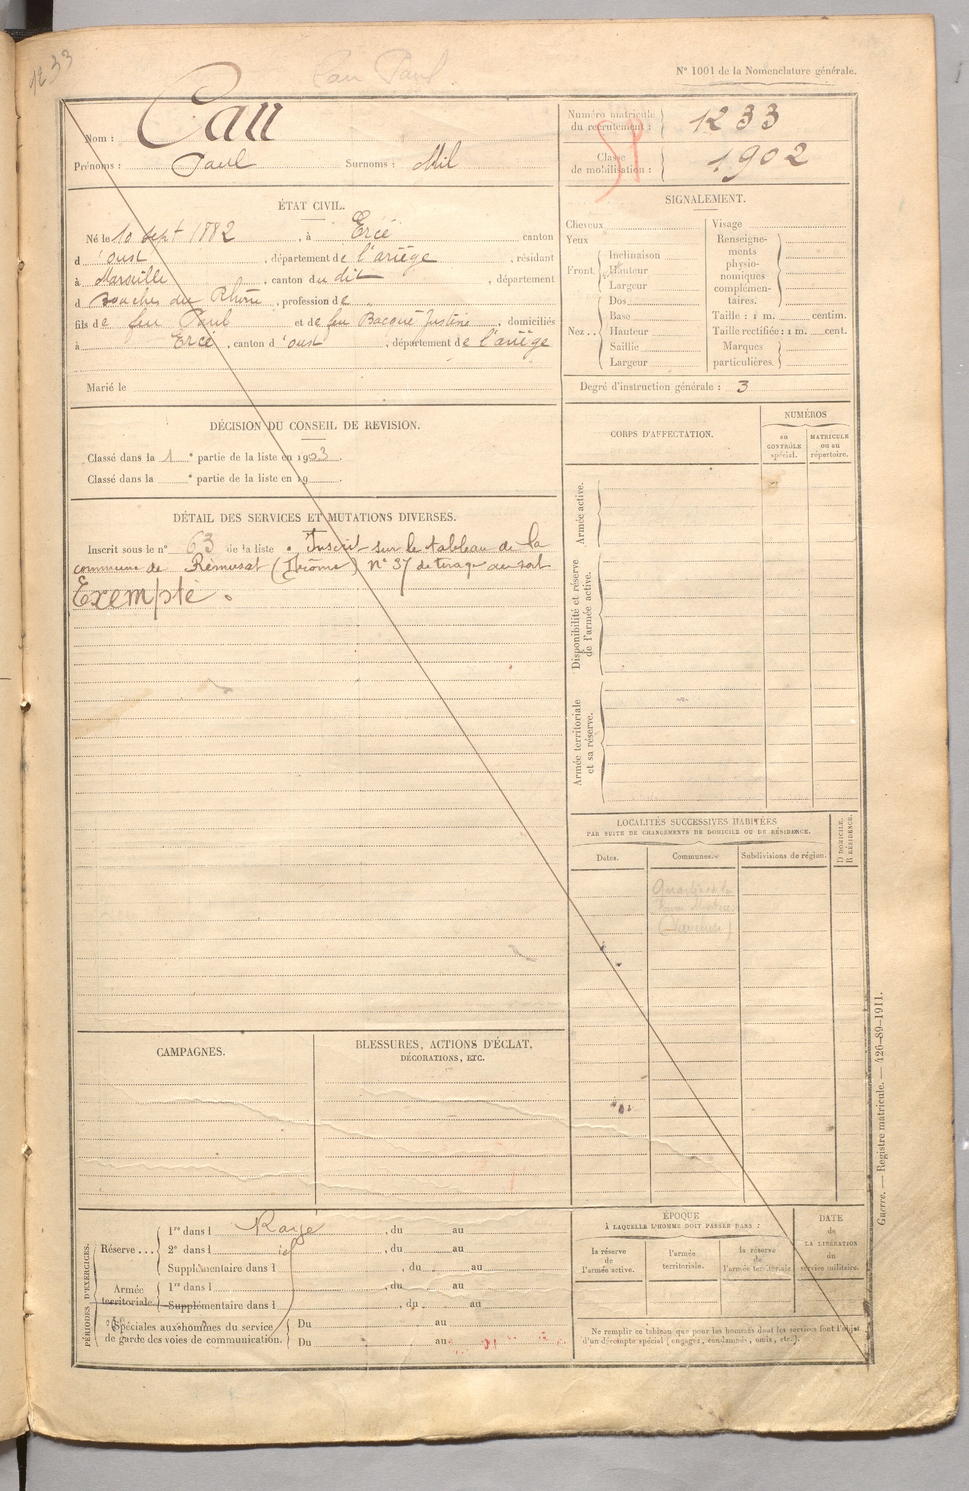 1233
Cau Paul
N° 1001 de la Nomenclature générale.
Nom : Cau
Prénoms : Paul Surnoms : Mil
Numéro matricule du recrutement : 1233
Classe de mobilisation : 1902
ÉTAT CIVIL.
Né le 10 sept 1882, à Ercé canton
d'oust, département de l'ariège, résidant
à Marseille, canton du dit, département
d Bouches du Rhône, profession de
fils de feu Paul et de feu Bacqué Justine, domiciliés
à Ercé, canton d'oust, département de l'ariège
Marié le
SIGNALEMENT.
Cheveux
Yeux
Front. Inclinaison
Hauteur
Largeur
Nez.. Dos
Base
Hauteur
Saillie
Largeur
Visage
Renseigne-
ments
physio-
nomiques
complémen-
taires.
Taille : 1 m. centim.
Taille rectifiée : 1 m. cent.
Marques
particulières.
Degré d'instruction générale : 3
DÉCISION DU CONSEIL DE REVISION.
Classé dans la 1 e partie de la liste en 1903.
Classé dans la e partie de la liste en 19
DÉTAIL DES SERVICES ET MUTATIONS DIVERSES.
Inscrit sous le n° 63 de la liste. Inscrit sur le tableau de la
commune de Rémusat (Drôme) n° 37 de tirage au sort
Exempté.
CORPS D'AFFECTATION.
NUMÉROS
au
CONTRÔLE
spécial.
MATRICULE
ou au
répertoire.
Armée active.
Disponibilité et réserve
de l'armée active.
Armée territoriale
et sa réserve.
LOCALITÉS SUCCESSIVES HABITÉES
PAR SUITE DE CHANGEMENTS DE DOMICILE OU DE RÉSIDENCE.
D DOMICILE.
R RÉSIDENCE.
Dates.
Communes.
Subdivisions de région.
(Vaucluse)
CAMPAGNES.
BLESSURES, ACTIONS D'ÉCLAT,
DÉCORATIONS, ETC.
PÉRIODES D'EXERCICES.
Réserve... 1re dans l , du au
2e dans l , du au
Supplémentaire dans l , du au
Armée
territoriale. 1re dans l , du au
Supplémentaire dans l , du au
Spéciales aux hommes du service
de garde des voies de communication.
Du au
Du au
ÉPOQUE
À LAQUELLE L'HOMME DOIT PASSER DANS :
la réserve
de
l'armée active.
l'armée
territoriale.
la réserve
de
l'armée territoriale.
DATE
de
LA LIBÉRATION
du
service militaire.
Ne remplir ce tableau que pour les hommes dont les services font l'objet
d'un décompte spécial (engagés, condamnés, omis, etc.).
Guerre. — Registre matricule. — 426-89-1911.